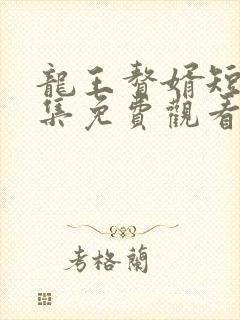 龍王贅婿短
集免費觀看
考格蘭